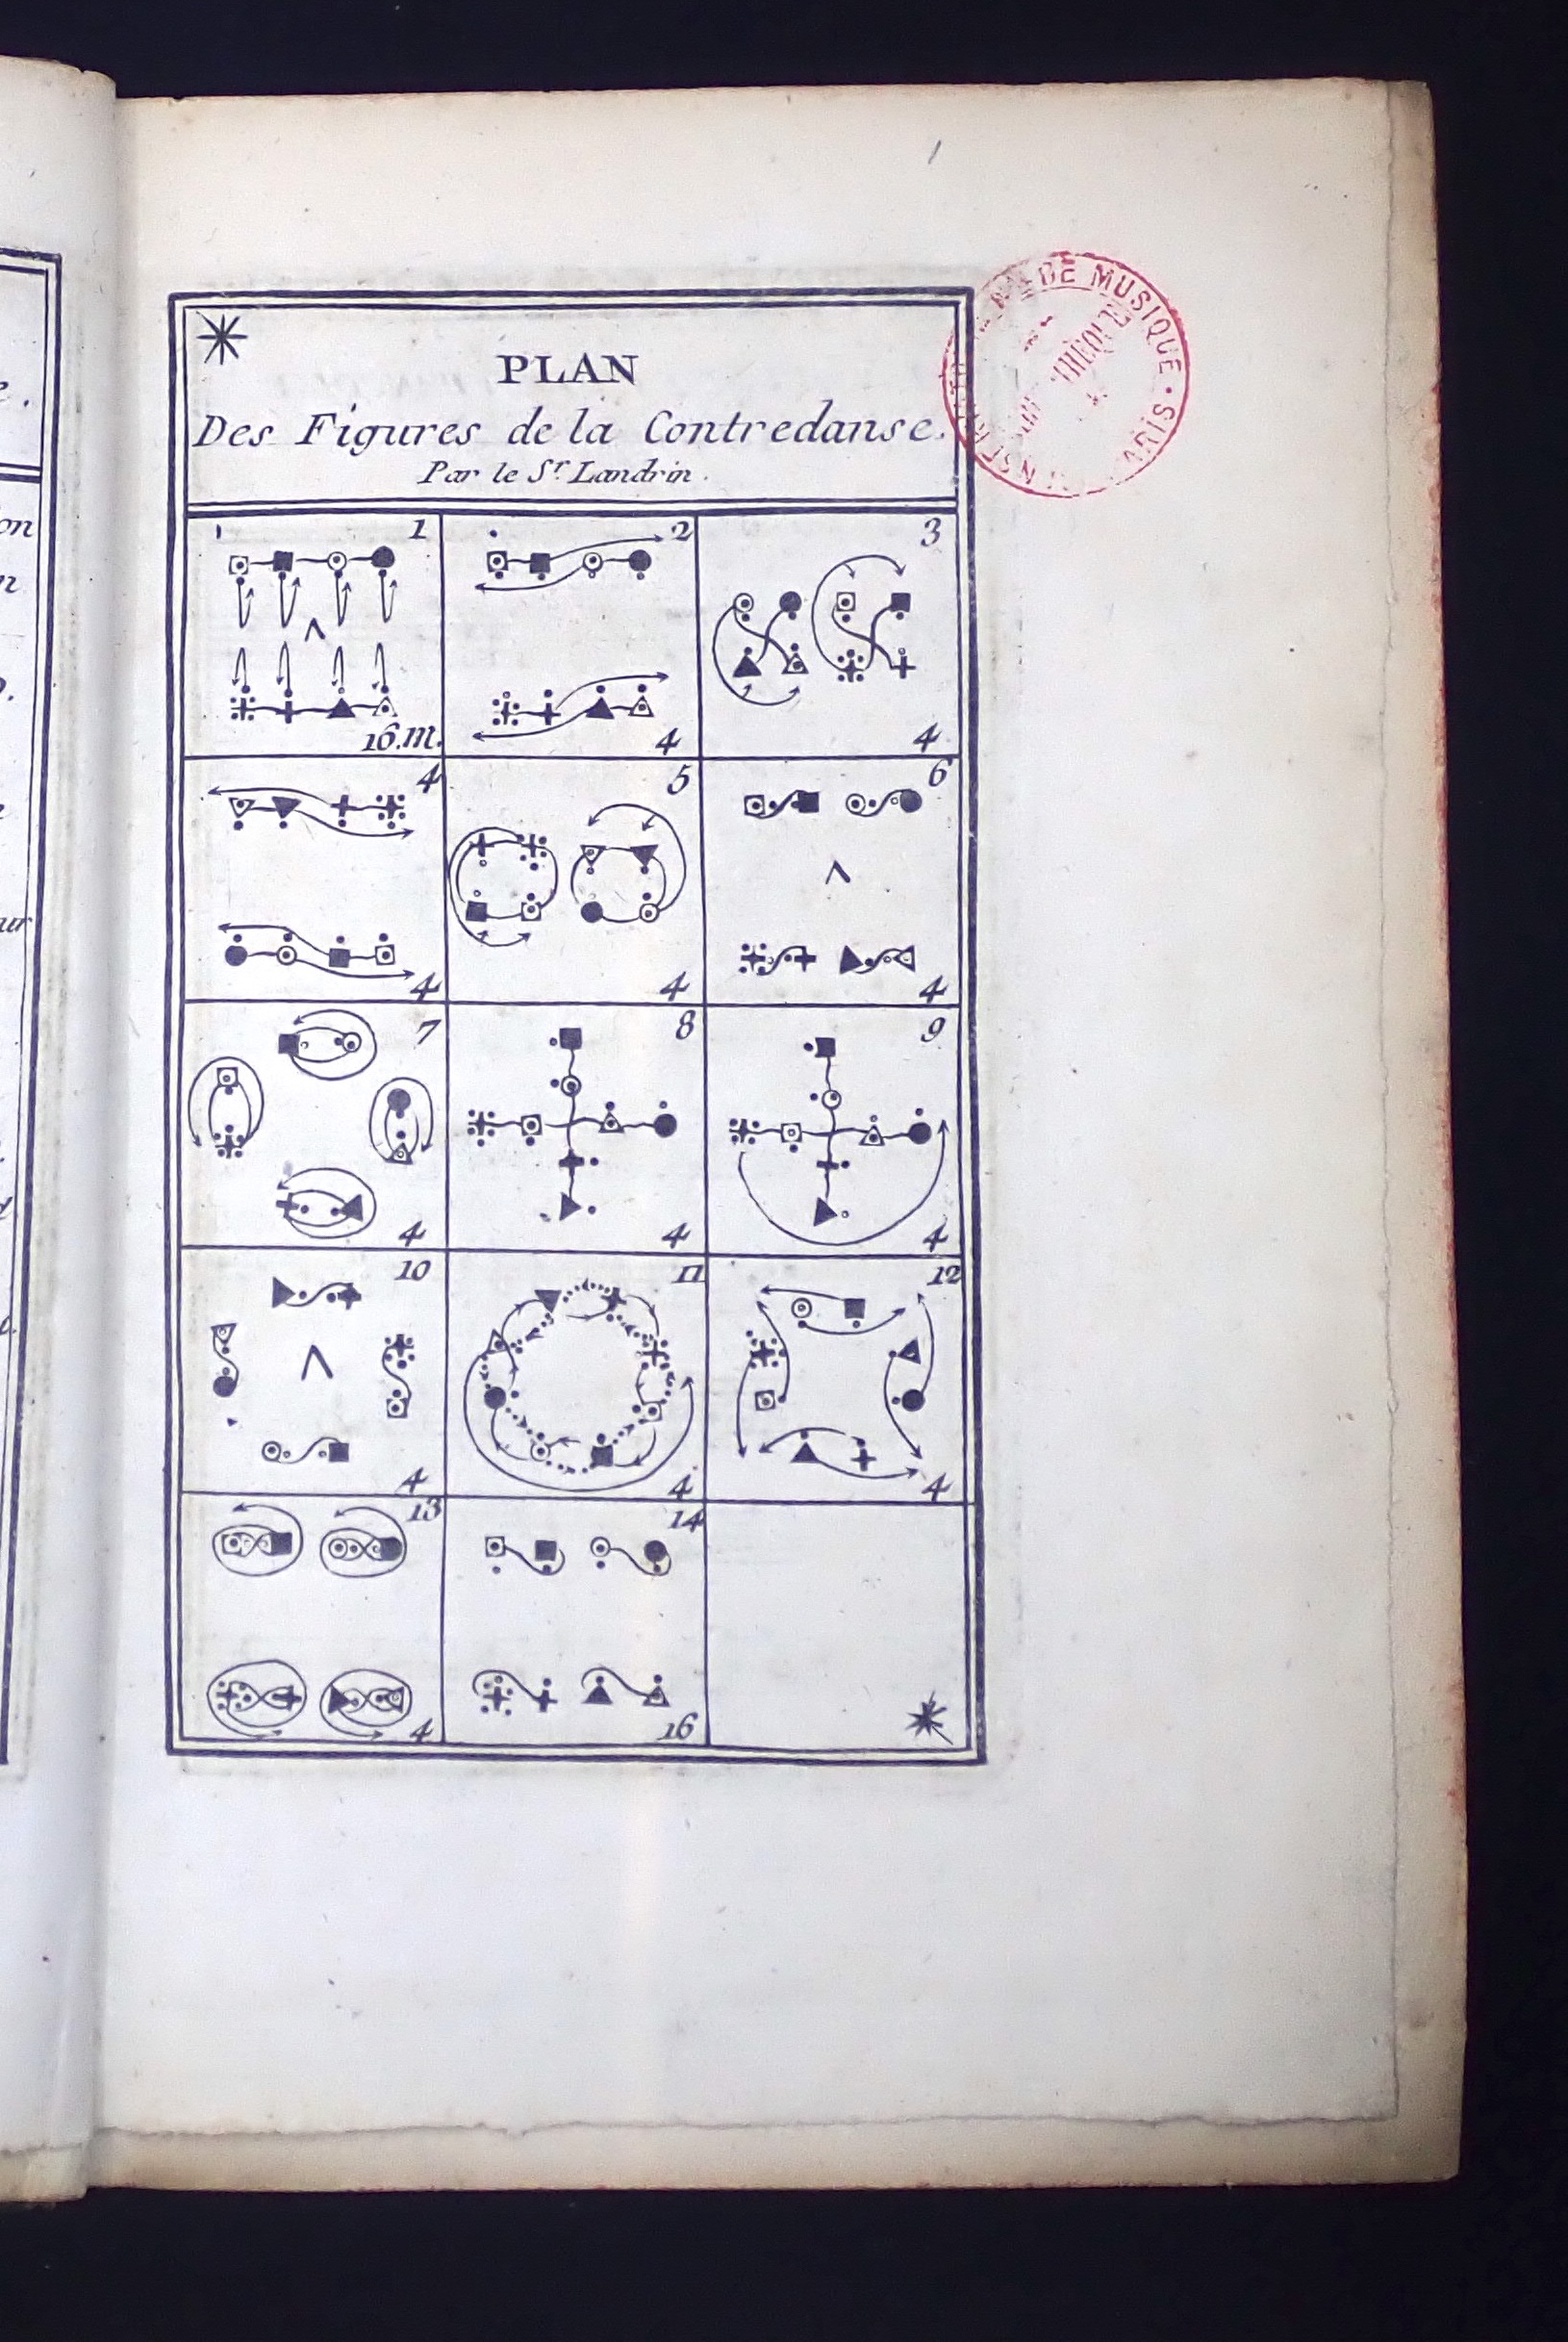 PLAN
Des Figures de la Contredanse.
Par le Sr. Landrin.
1
16.m.
2
4
3
4
4
4
5
4
6
4
7
4
8
4
9
4
10
4
11
4
12
4
13
4
14
16
DE MUSIQUE